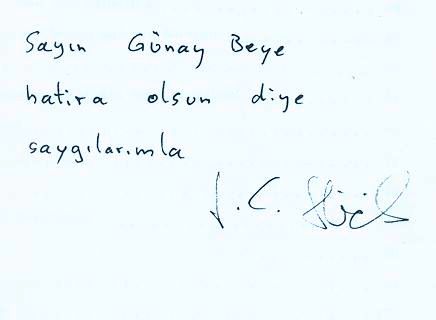 Sayın Günay Beye
hatira olsun diye
saygılarımla
J. C.